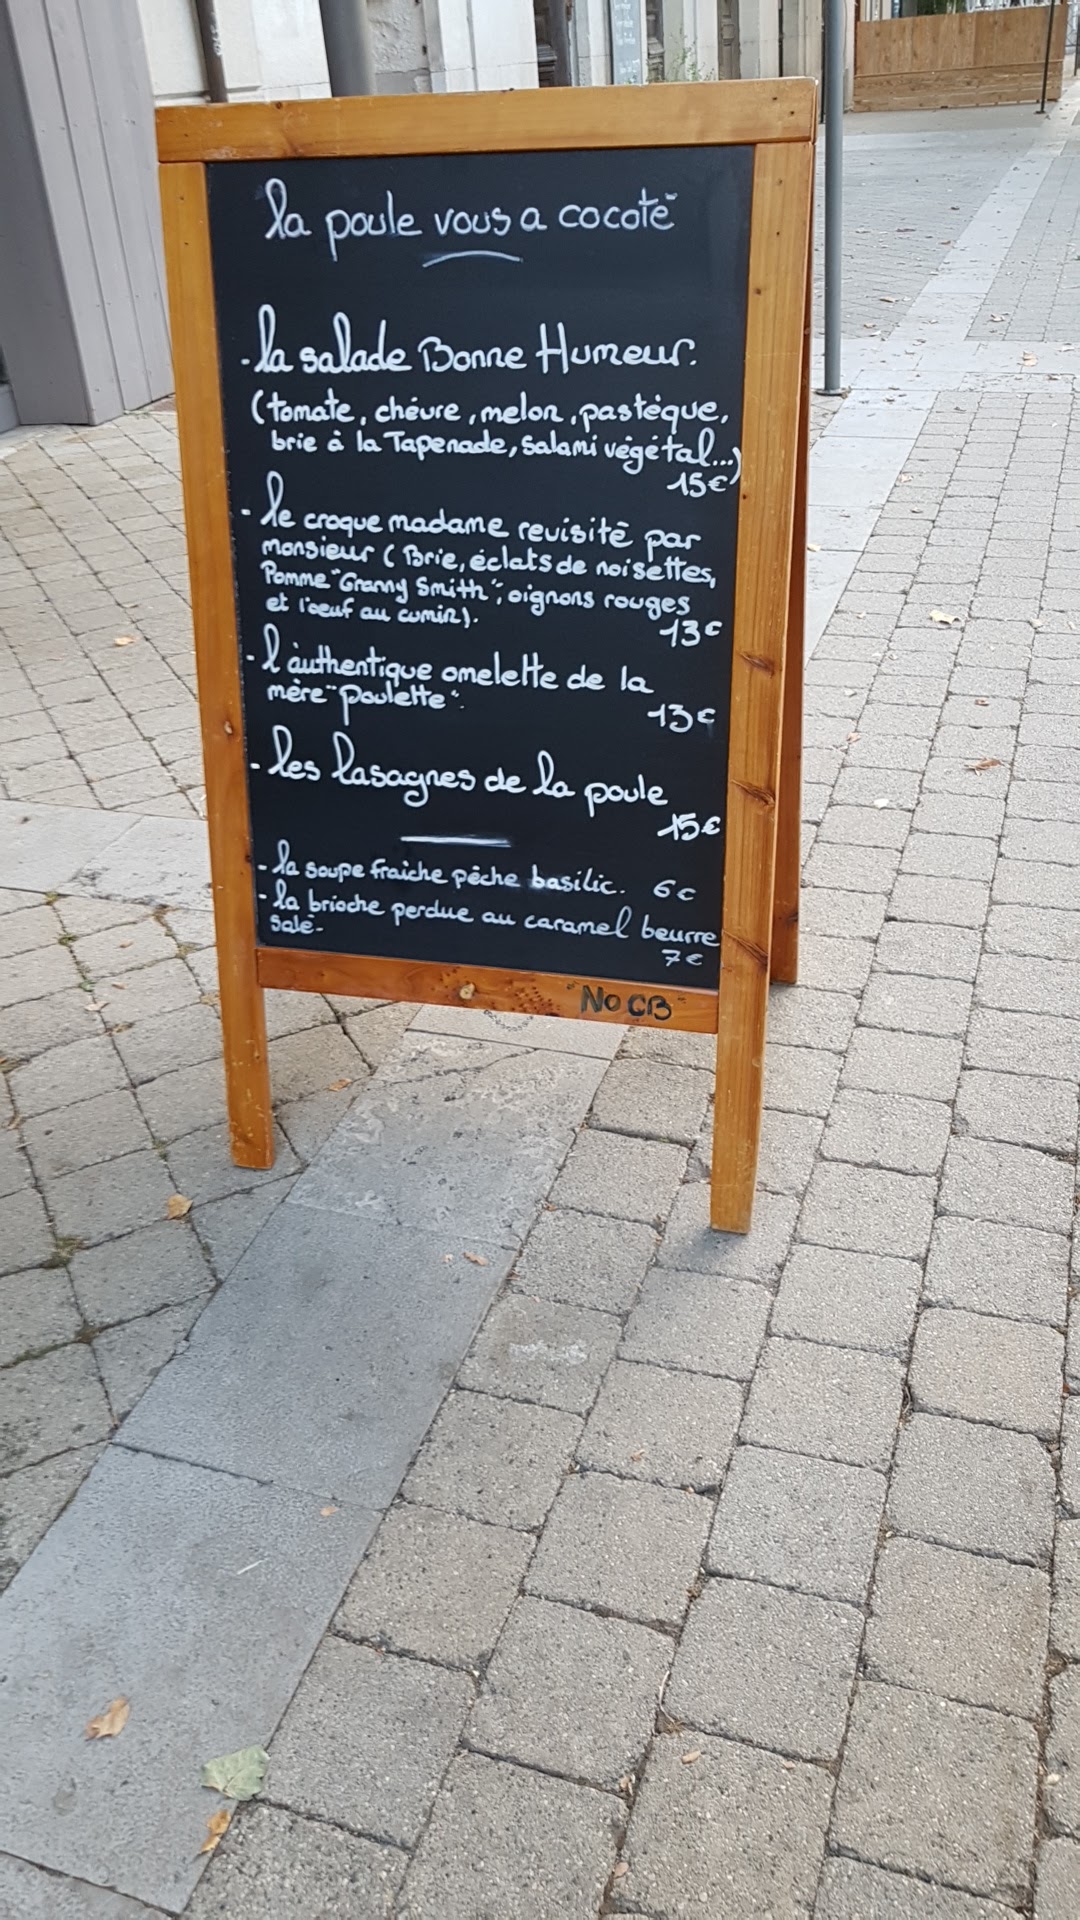 la poule vous a cocoté
- la salade Bonne Humeur.
(tomate, chèvre, melon, pastèque,
brie à la Tapenade, salami végétal...)
15€
- le croque madame revisité par
monsieur (Brie, éclats de noisettes,
Pomme "Granny Smith", oignons rouges
et l'oeuf au cumin).
13€
- l'authentique omelette de la
mère "Poulette".
13€
- les lasagnes de la poule
15€
- la soupe fraîche pêche basilic. 6€
- la brioche perdue au caramel beurre
salé.
7€
"No CB"